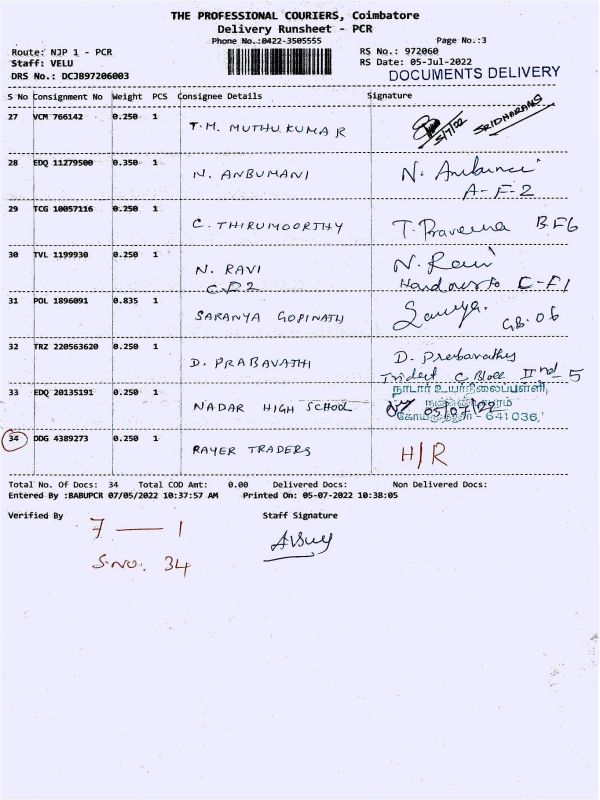 THE PROFESSIONAL COURIERS, Coimbatore
Delivery Runsheet - PCR
Phone No.:0422-3505555 Page No.:3
Route: NJP 1 - PCR RS No.: 972060
Staff: VELU RS Date: 05-Jul-2022
DRS No.: DCJB97206003 DOCUMENTS DELIVERY
S No Consignment No Weight PCS Consignee Details Signature
27 VCM 766142 0.250 1 T.M. MUTHU KUMAR 5/7/22 SRIDHARANS
28 EDQ 11279500 0.350 1 N. ANBUMANI N. Anbumani
A-F-2
29 TCG 10057116 0.250 1 C. THIRUMOORTHY T. Praveena BF6
30 TVL 1199930 0.250 1 N. RAVI N. Ravi
C-F2 Handover to C-F1
31 POL 1896091 0.835 1 SARANYA GOPINATH Saranya. GB.06
32 TRZ 220563620 0.250 1 D. PRABAVATHI D. Prabavathy
Trident C Block IInd 5
33 EDQ 20135191 0.250 1 NADAR HIGH SCHOOL நாடார் உயர்நிலைப்பள்ளி,
05/07/22
641 036.
34 DDG 4389273 0.250 1 RAYER TRADERS H/R
Total No. Of Docs: 34 Total COD Amt: 0.00 Delivered Docs: Non Delivered Docs:
Entered By :BABUPCR 07/05/2022 10:37:57 AM Printed On: 05-07-2022 10:38:05
Verified By Staff Signature
7 — 1
S.NO. 34